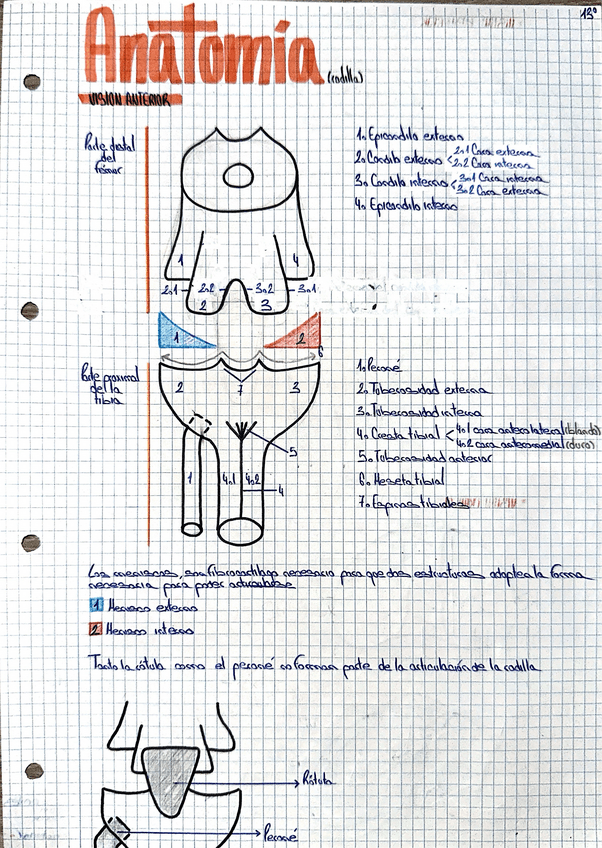 13º
Anatomía (rodilla)
VISION ANTERIOR
Parte distal
del
fémur
1. Epicondilo externo
2. Condilo externo < 2.1 Cara externa
2.2 Cara interna
3. Condilo interno < 3.1 Cara interna
3.2 Cara externa
4. Epicondilo interno
1
4
2.1
2.2
3.2
3.1
2
3
1
2
6
Parte proximal
de la
tibia
2
7
3
5
1
4.1
4.2
4
1. Peroné
2. Tuberosidad externa
3. Tuberosidad interna
4. Cresta tibial < 4.1 cara anterolateral (blando)
4.2 cara anteromedial (duro)
5. Tuberosidad anterior
6. Meseta tibial
7. Espinas tibiales
Los meniscos, son fibrocartílago necesario para que dos estructuras adopten la forma
necesaria para poder articularse
1 Menisco externo
2 Menisco interno
Tanto la rótula como el peroné no forman parte de la articulación de la rodilla
Rótula
Peroné